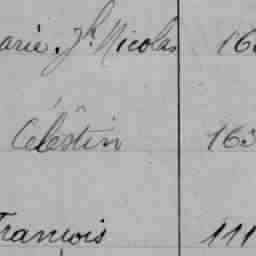 arie Jh. Nicolas 16
Célestin 163
François 111